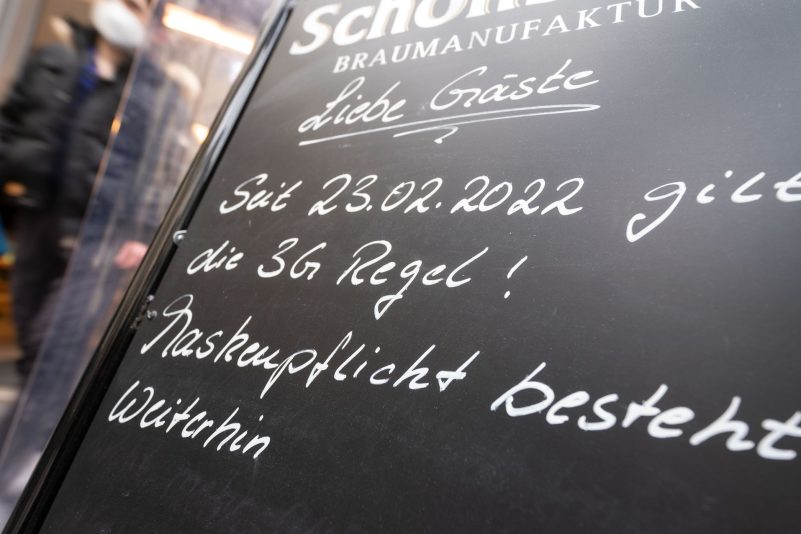 BRAUMANUFAKTUR
Liebe Gäste
Seit 23.02.2022 gilt
die 3G Regel !
Maskenpflicht besteht
Weiterhin